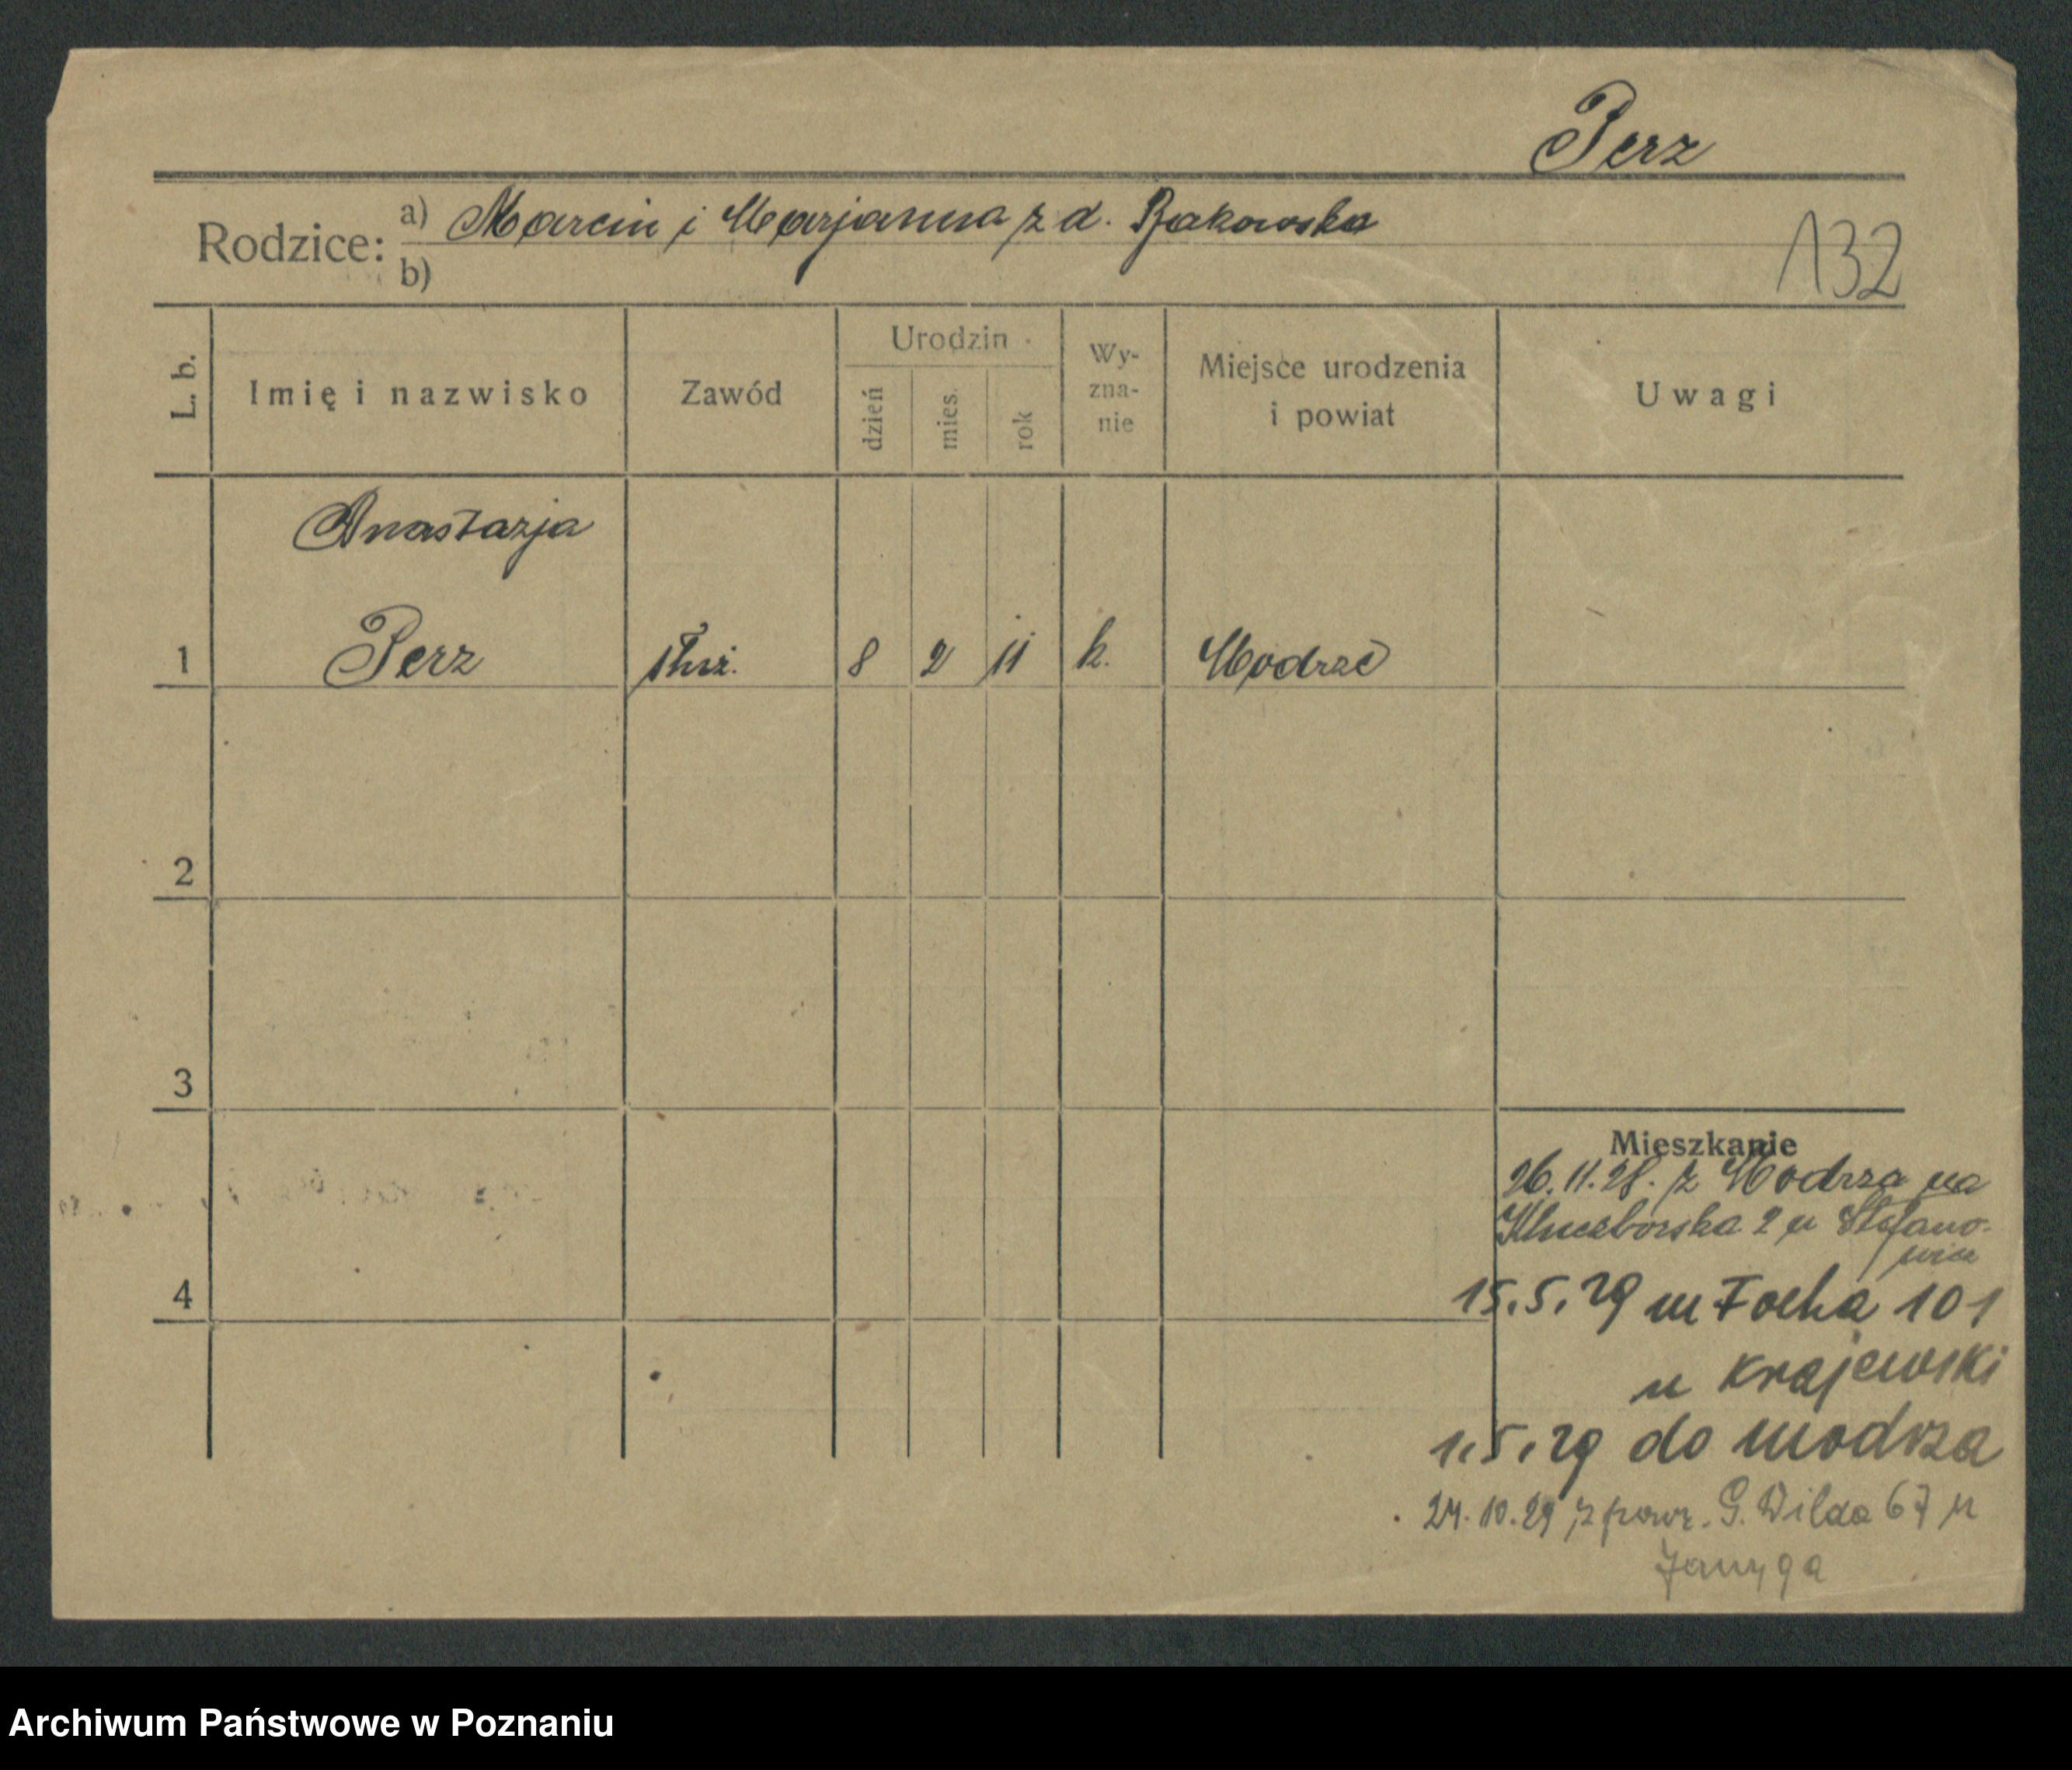 Perz
Rodzice: a) Marcin i Marjanna z d. Bąkowska
b)
132
L. b.
Imię i nazwisko
Zawód
Urodzin
dzień
mies.
rok
Wy-
zna-
nie
Miejsce urodzenia
i powiat
Uwagi
Anastazja
1 Perz służ. 8 2 11 k. Modrze
2
3
4
Mieszkanie
26.11.28. z Modrza na
Kluczborska 2 u Stefano-
wicz
15.5.29 m Focha 101
u Krajewski
1.5.29 do modrza
24.10.29 z powr. G. Wilda 67 u
Archiwum Państwowe w Poznaniu